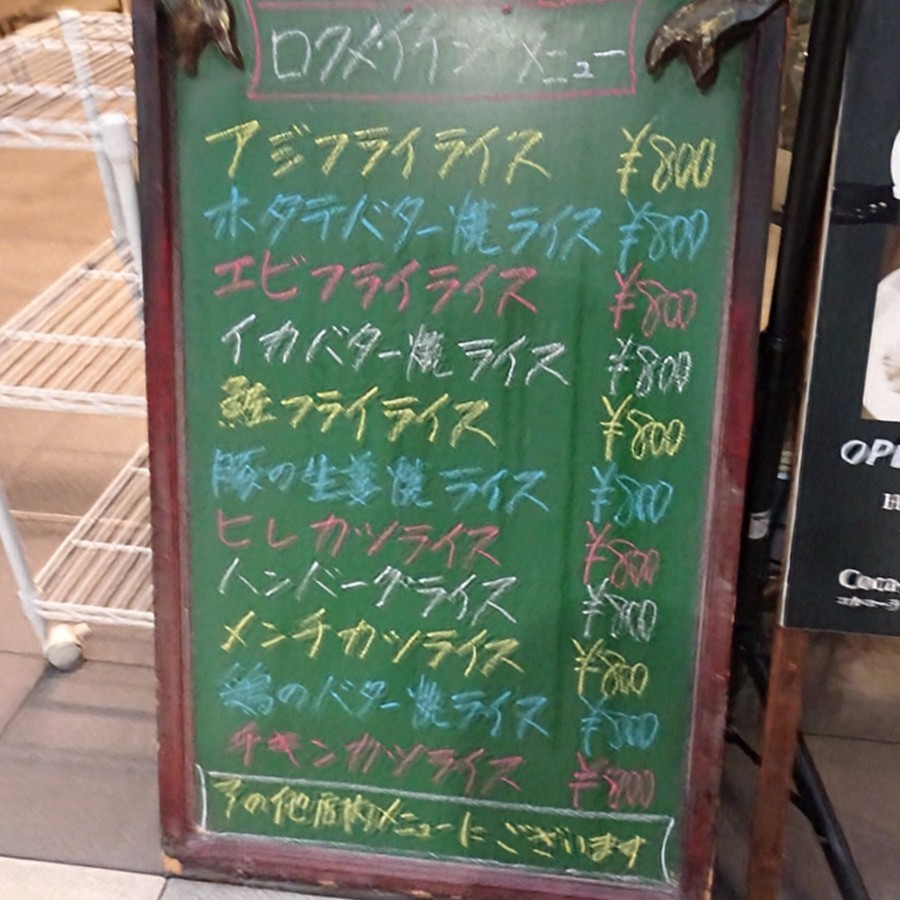 ロクメイインメニュー
アジフライライス ¥800
ホタテバター焼ライス ¥800
エビフライライス ¥800
イカバター焼ライス ¥800
鮭フライライス ¥800
豚の生姜焼ライス ¥800
ヒレカツライス ¥800
ハンバーグライス ¥800
メンチカツライス ¥800
鶏のバター焼ライス ¥800
チキンカツライス ¥800
その他店内メニューにございます